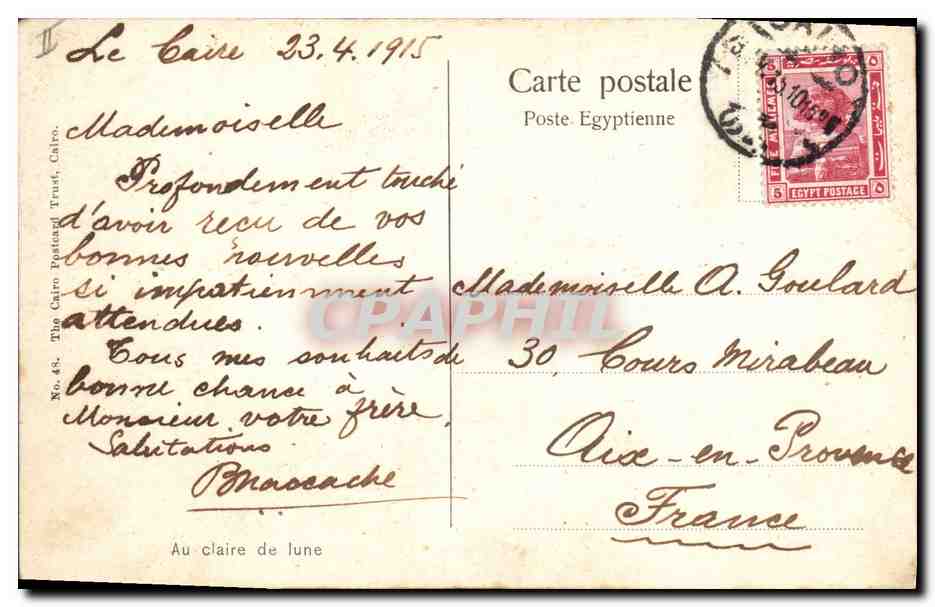 II
Le Caire 23.4.1915
Mademoiselle
Profondement touché
d'avoir reçu de vos
bonnes nouvelles
si impatiemment
attendues.
Tous mes souhaits de
bonne chance à
Monsieur votre frère
Salutations
Au claire de lune
No. 48. The Cairo Postcard Trust, Cairo.
Carte postale
Poste Egyptienne
CAIRO
FIVE MILLIEMES
5
EGYPT POSTAGE
٥
Mademoiselle A. Goulard
30, Cours Mirabeau
Aix-en-Provence
France
CPAPHIL